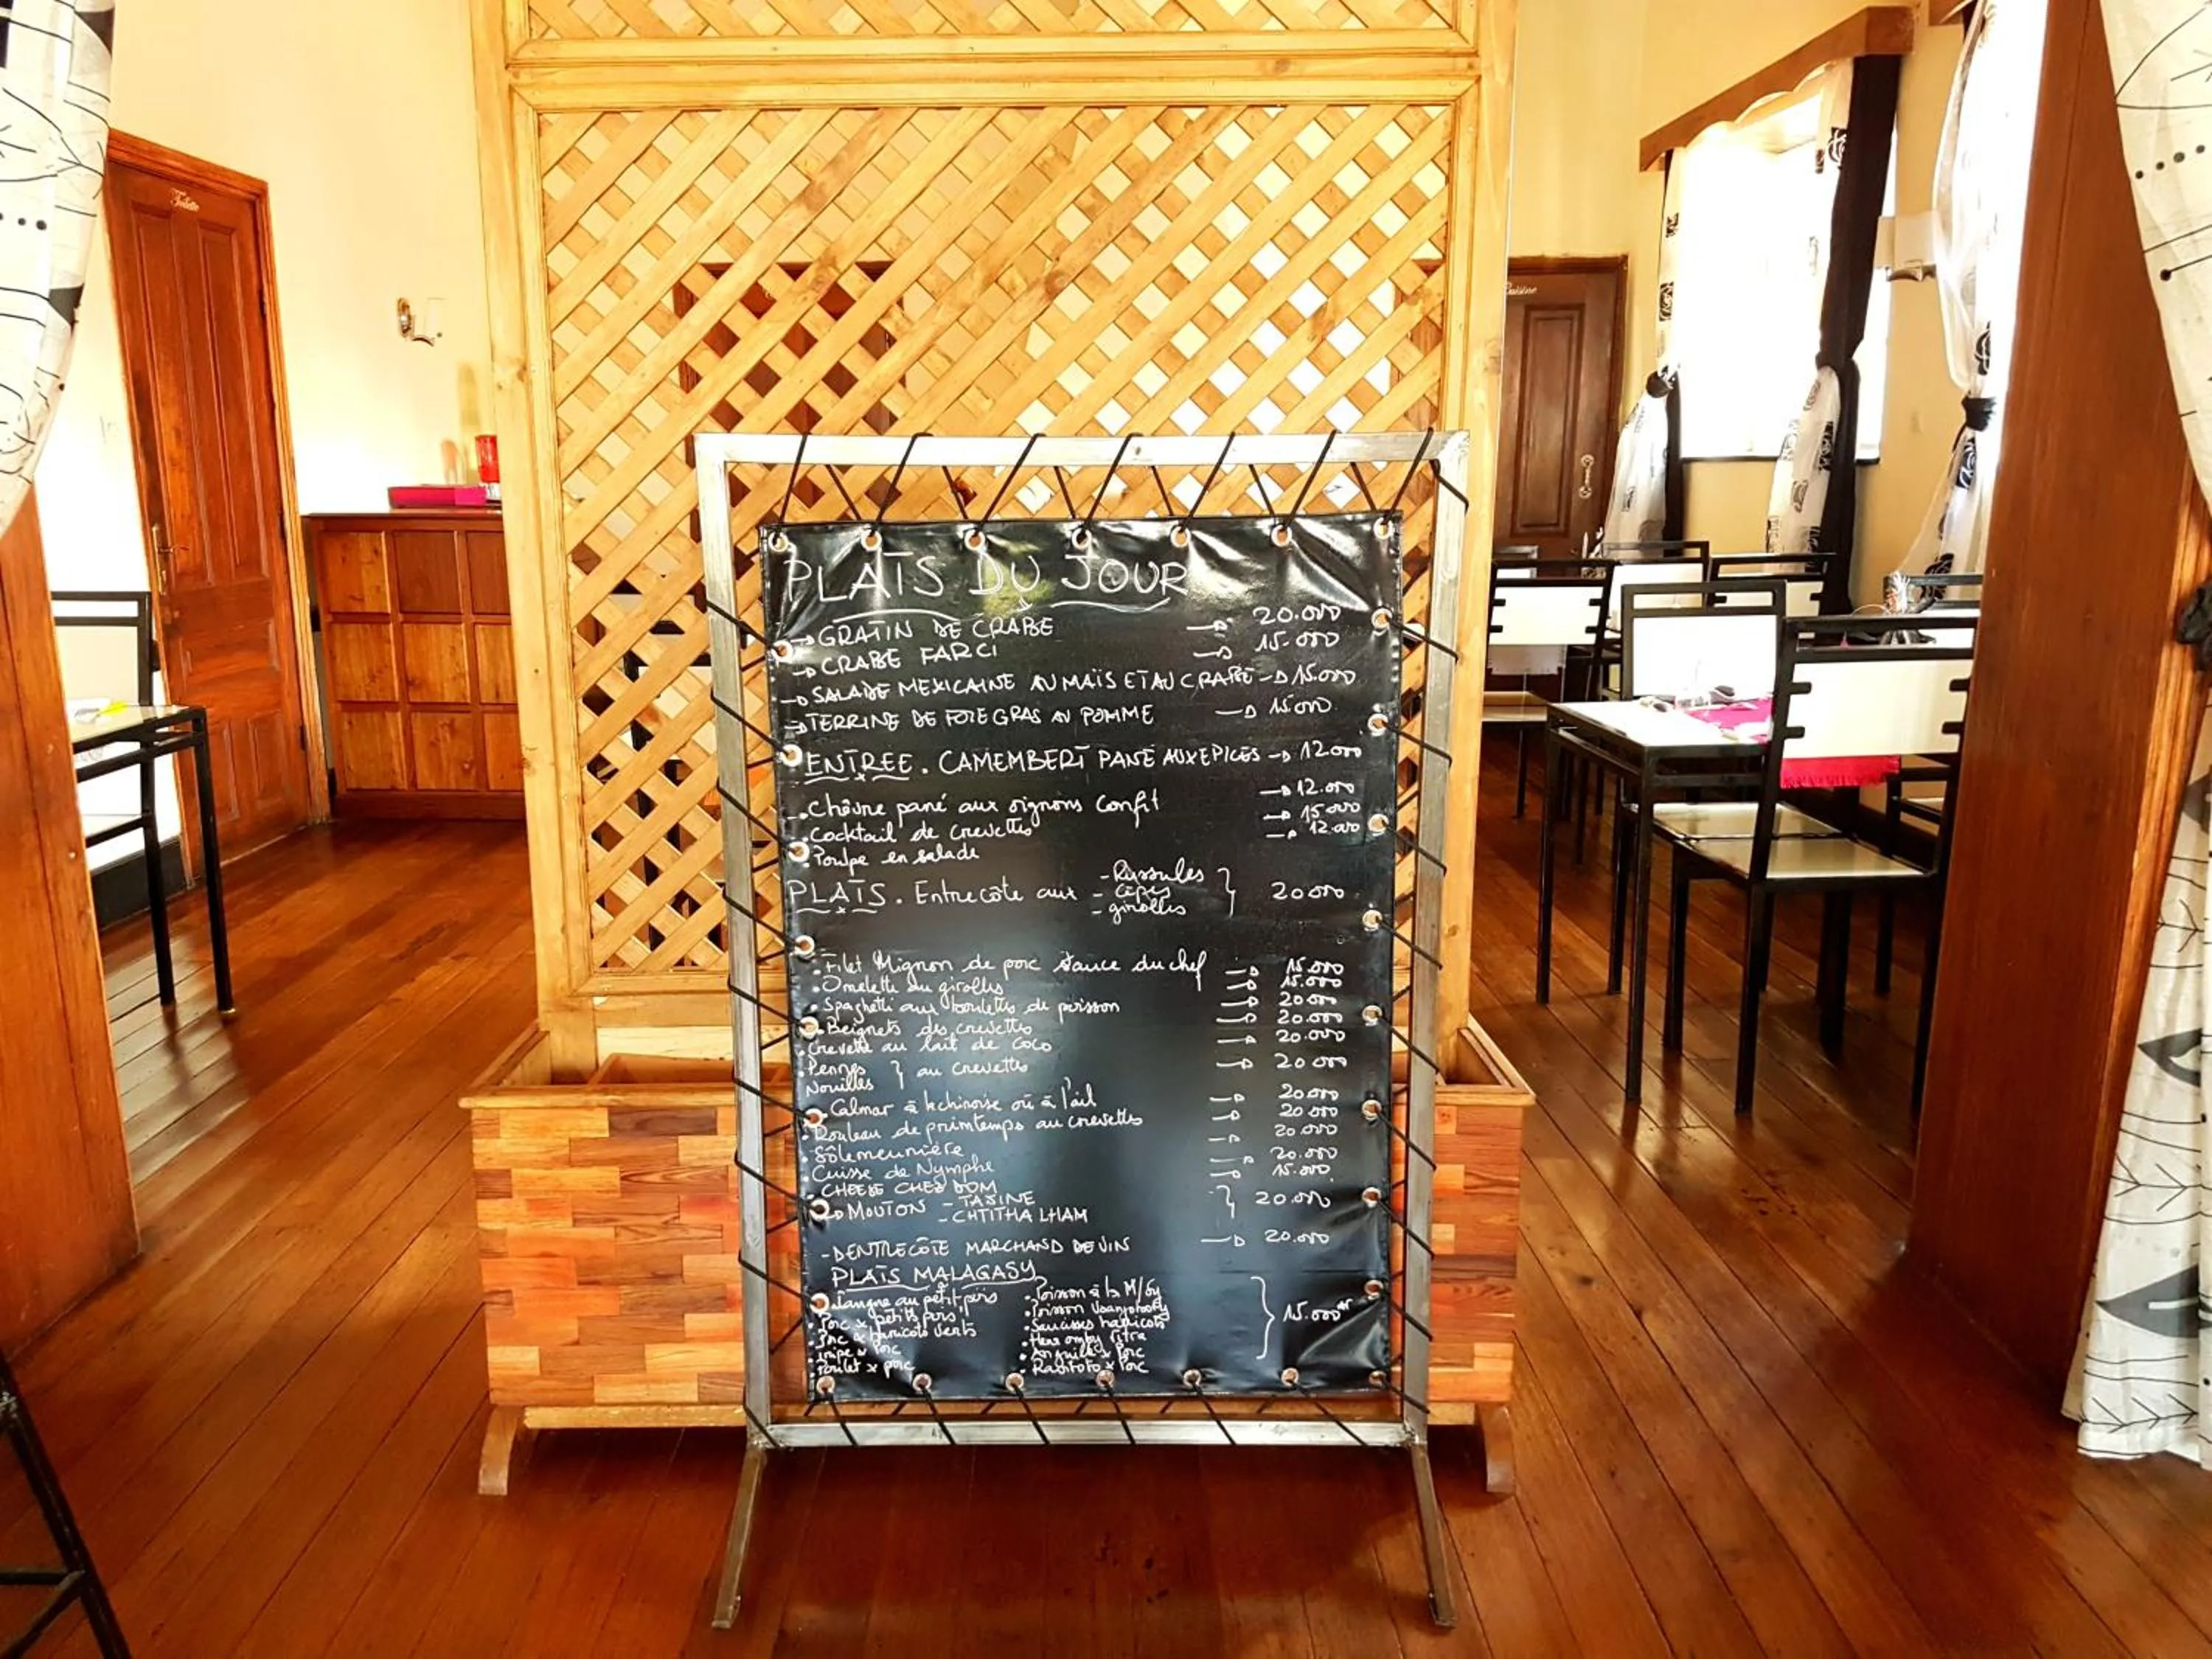 Toilette
PLATS DU JOUR
GRATIN DE CRABE 20.000
CRABE FARCI 15.000
SALADE MEXICAINE AU MAÏS ET AU CRABE 15.000
TERRINE DE FOIE GRAS AU POMME 15000
ENTREE. CAMEMBERT PANÉ AUX EPICES 12000
Chèvre pané aux oignons Confit 12.000
Cocktail de crevettes 15000
Poulpe en salade 12.000
PLATS. Entrecôte aux - Russules - Cèpes - girolles } 20000
Filet Mignon de porc sauce du chef 15.000
Omelette au girolles 15.000
Spaghetti aux boulettes de poisson 20000
Beignets des crevettes 20.000
Crevette au lait de coco 20.000
Pennes
Nouilles } au crevettes 20000
Calmar à la chinoise où à l'ail 20000
Rouleau de primtemps au crevettes 20000
Sôle meunière 20.000
Cuisse de Nymphe 20.000
CHEESE CHEZ DOM 15.000
MOUTON - TAJINE
- CHTITHA LHAM } 20.000
- DENTRECÔTE MARCHAND DE VIN 20.000
PLATS MALAGASY
Langue au petit pois
Porc x petits pois
Porc x haricots verts
Tripe x Porc
Poulet x porc
Poisson à la M/Gy
Poisson
Saucisses haricots
Hena omby ritra
Anguille x Porc
Ravitoto x Porc
15.000 Ar